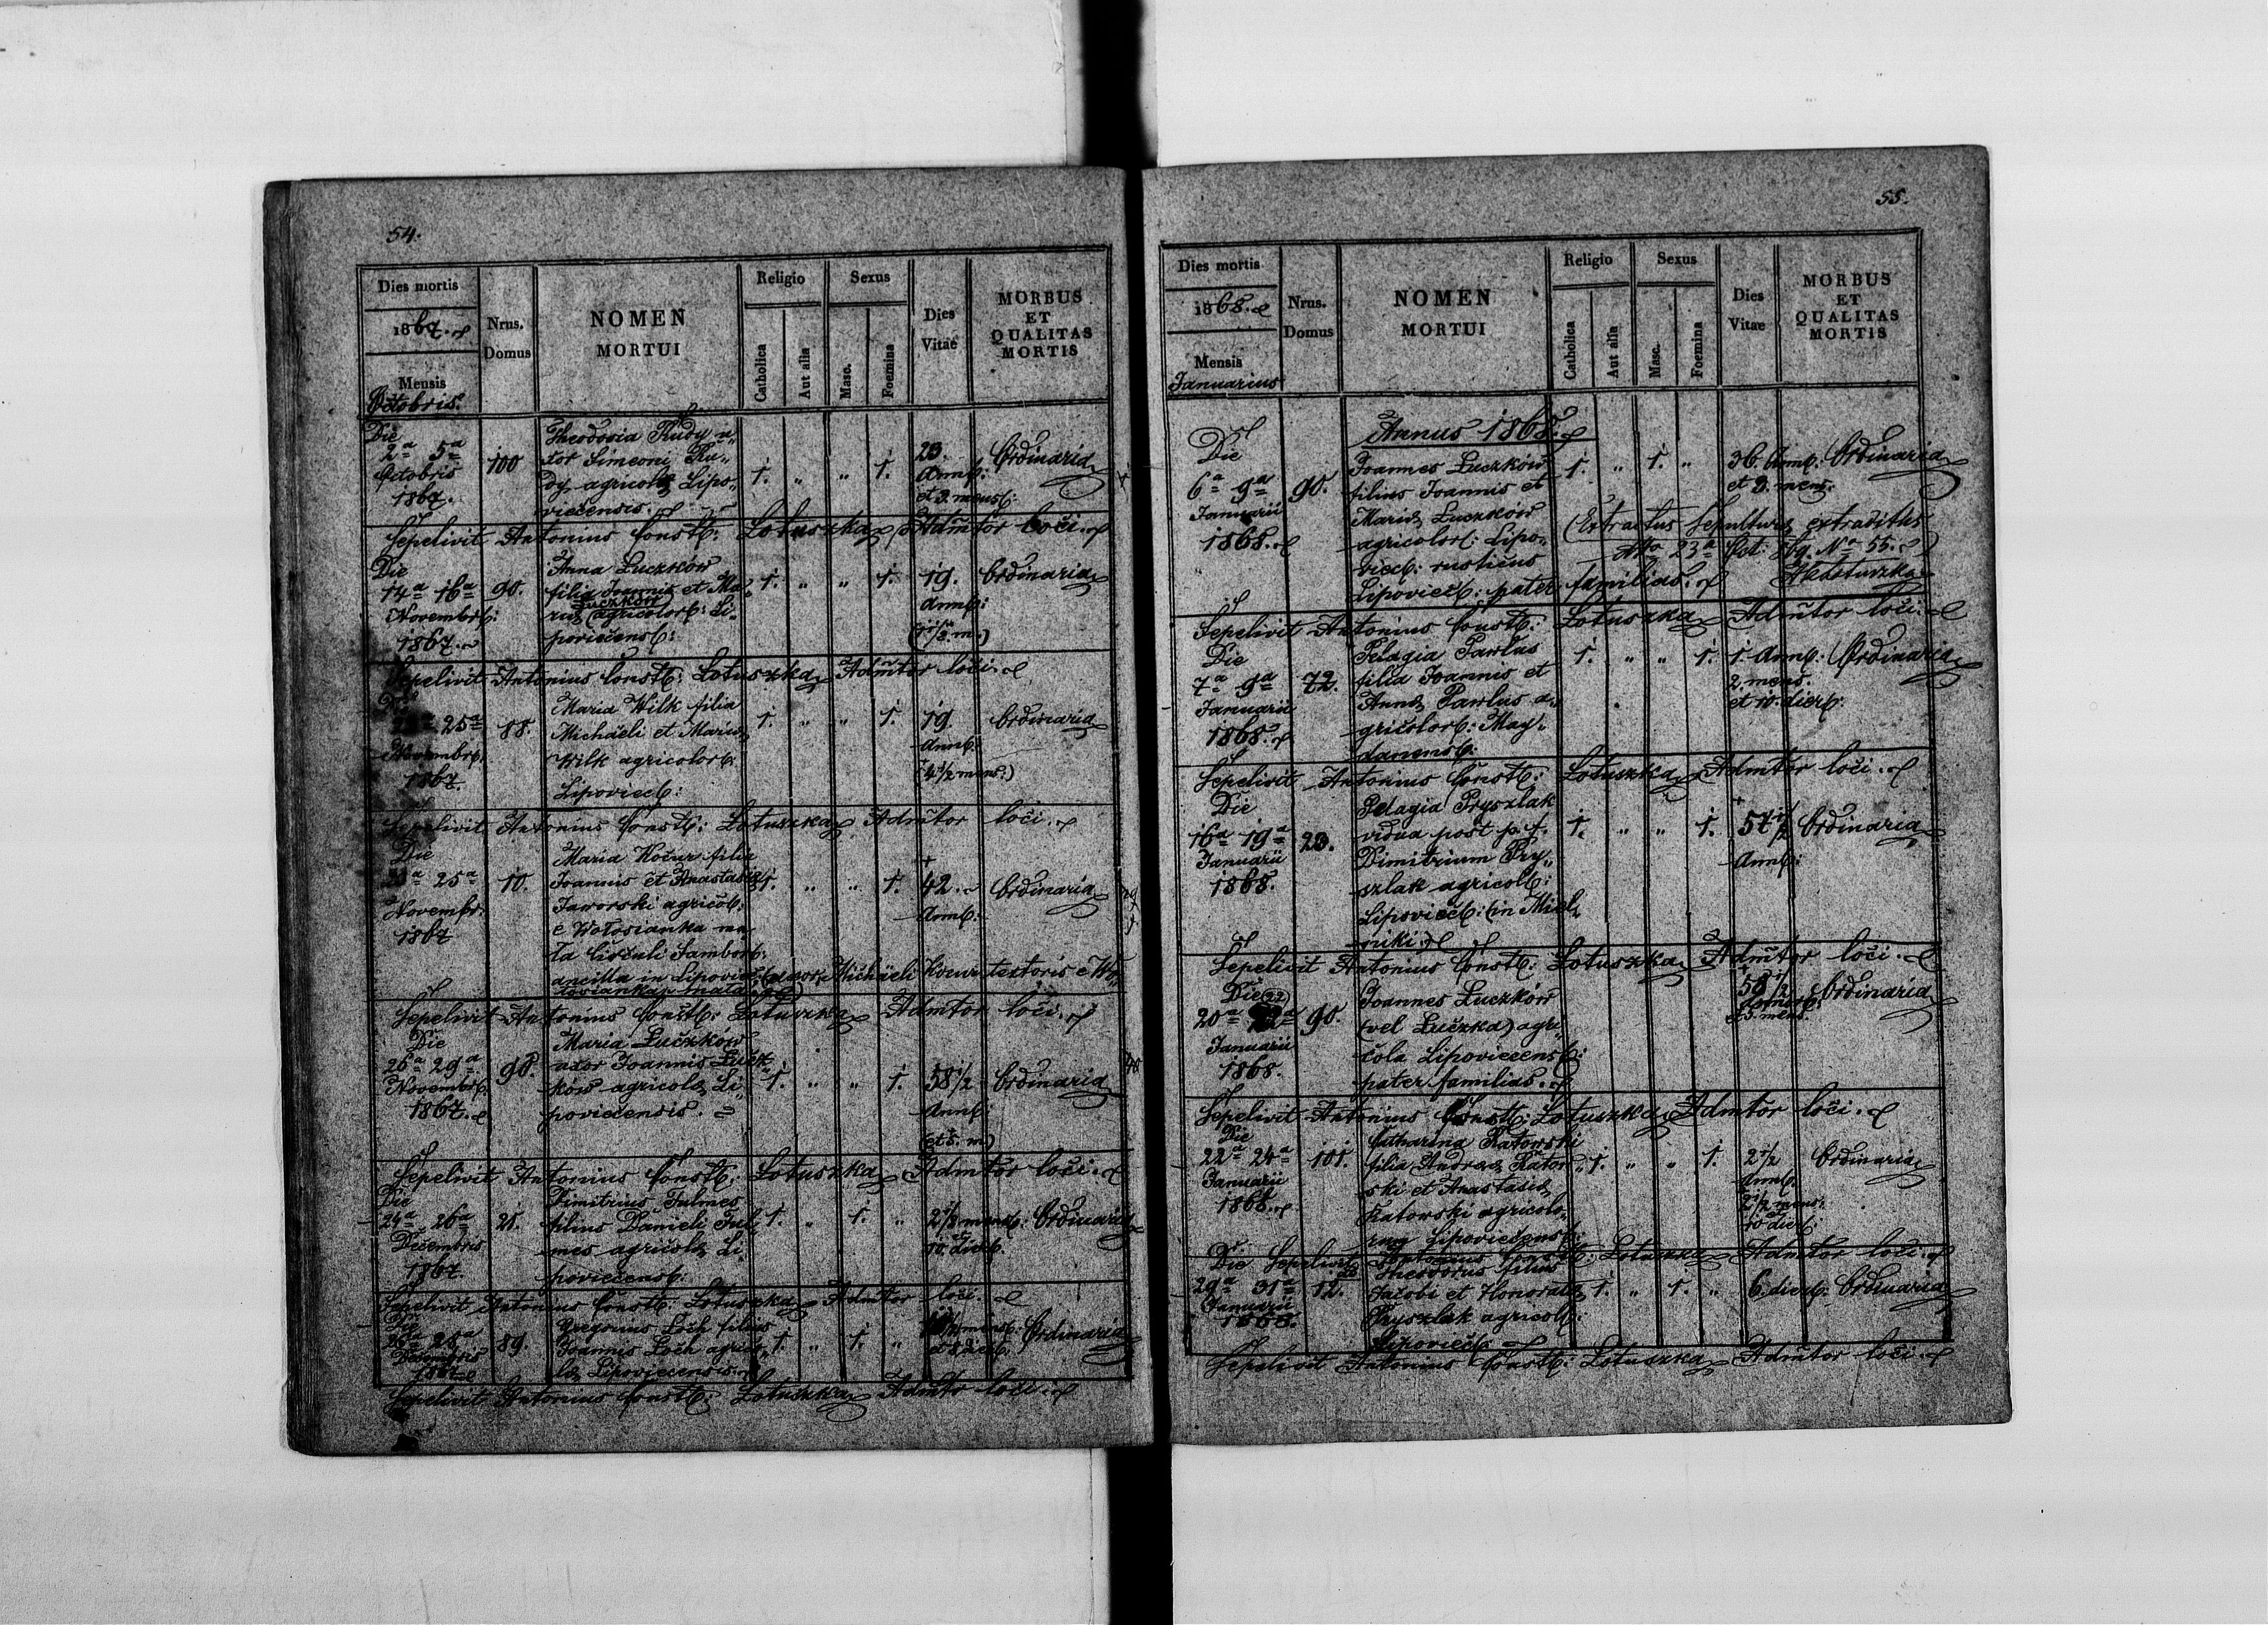 54.
Dies mortis
1867.
Mensis
Octobris.
Nrus.
Domus
NOMEN
MORTUI
Religio
Catholica
Aut alia
Sexus
Masc.
Foemina
Dies
Vitae
MORBUS
ET
QUALITAS
MORTIS
Die
2a 5a
Octobris
1867.
100
Theodosia Rudy u„
xor Simeoni Ru„
dy agricolae Lipo„
viecensis.
1. „ „ 1.
23.
Ann:
et 3. mens:
Ordinaria
Sepelivit Antonius Const: Lotuszka Admtor loci.
Die
14a 16a
Novembr:
1867.
90.
Anna Luczków
filia Joannis et Ma„
riae Luczków agricolor: Li„
poviecens:
1. „ „ 1.
19.
Ann:
(1 1/2 m.)
Ordinaria
Sepelivit Antonius Const: Lotuszka Admtor loci.
25a
Novembr:
1867.
88.
Maria Wilk filia
Michaeli et Mariae
Wilk agricolor:
Lipoviec:
1. „ „ 1.
19.
Ann:
(4 1/2 mens:)
Ordinaria
Sepelivit Antonius Const: Lotuszka Admtor loci.
Die
23a 25a
Novembr:
1867
10.
Maria Kočur filia
Joannis et Anastasiae
Jaworski agricol:
e Wolosianka ma„
la Circuli Sambor:
ancilla in Lipoviec: (uxor Michaeli Kocur textoris e Wo„
losianka mala)
1. „ „ 1.
42.
Ann:
Ordinaria
Sepelivit Antonius Const: Lotuszka Admtor loci.
Die
26a 29a
Novembr:
1867.
90.
Maria Luczków
uxor Joannis Lucz„
ków agricolae Li„
poviecensis.
1. „ „ 1.
58 1/2
Ann:
(et 5. m.)
Ordinaria
Sepelivit Antonius Const: Lotuszka Admtor loci.
Die
24a 26a
Decembris
1867.
21.
Dimitrius Fulmes
filius Danieli Ful„
mes agricolae Li„
poviecens:
1. „ 1. „
2 1/2 mens:
10. dier:
Ordinaria
Sepelivit Antonius Const: Lotuszka Admtor loci.
26a 28a
Decembris
1867
89.
Gregorius Loch filius
Joannis Loch agrico„
lae Lipoviecensis.
1. „ 1. „
mens:
et 8. dier:
Ordinaria
Sepelivit Antonius Const: Lotuszka Admtor loci.
55.
Dies mortis
1868.
Mensis
Januarius
Nrus.
Domus
NOMEN
MORTUI
Religio
Catholica
Aut alia
Sexus
Masc.
Foemina
Dies
Vitae
MORBUS
ET
QUALITAS
MORTIS
Annus 1868.
Die
6a 9a
Januarii
1868.
90.
Joannes Luczków
filius Joannis et
Mariae Luczków
agricolor: Lipo„
viec: rusticus
Lipovieč: pater familias.
1. „ 1. „
36. Ann:
et 3. mens:
Ordinaria
(Extractus sepulturae extraditus
23a Oct: No 55.)
Sepelivit Antonius Const: Lotuszka Admtor loci.
Die
7a 9a
Januarii
1868.
72.
Pelagia Pawlus
filia Joannis et
Annae Pawlus a„
gricolor: May„
danens:
1. „ „ 1.
1. Ann:
2. mens.
et 10. dier:
Ordinaria
Sepelivit Antonius Const: Lotuszka Admtor loci.
Die
16a 19a
Januarii
1868.
23.
Pelagia Pryszlak
vidua post p. f.
Dimitrium Pry„
szlak agricol:
Lipovieč: (in Miel„
niki)
1. „ „ 1.
57 1/2
Ann:
Ordinaria
Sepelivit Antonius Const: Lotuszka Admtor loci.
Die (22)
20a 22a
Januarii
1868.
90.
Joannes Luczków
(vel Luczka) agri„
cola Lipoviecens:
pater familias.
58 1/2
Annor:
et 5. mens.
Ordinaria
Sepelivit Antonius Const: Lotuszka Admtor loci.
Die
22a 24a
Januarii
1868.
101.
Catharina Ratowski
filia Andreae Ratow„
ski et Anastasiae
Ratowski agricolo„
rum Lipoviecens:
1. „ „ 1.
2 1/2
Ann:
2 1/2 mens:
10 dier:
Ordinaria
Sepelivit Antonius Const: Lotuszka Admtor loci.
Die
29a 31a
Januarii
1868.
12.
Theodorus filius
Jacobi et Honoratae
Pryszlak agricol:
Lipovieč:
1. „ 1. „
6. dier:
Ordinaria
Sepelivit Antonius Const: Lotuszka Admtor loci.